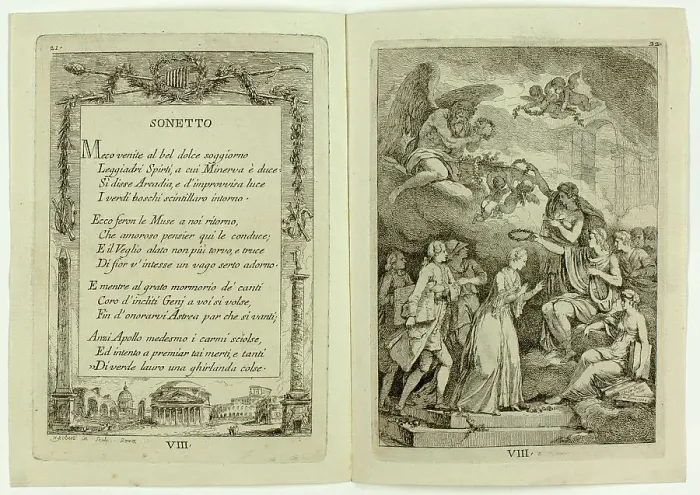 21.
SONETTO
Meco venite al bel dolce soggiorno
Leggiadri Spirti, a cui Minerva è duce:
Si disse Arcadia, e d'improvvisa luce
I verdi boschi scintillaro intorno.
Ecco feron le Muse a noi ritorno,
Che amoroso pensier qui le conduce;
E il Veglio alato non più torvo, e truce
Di fior v'intesse un vago serto adorno.
E mentre al grato mormorio de' canti
Coro d'incliti Genj a voi si volse,
Fin d'onorarvi Astrea par che si vanti;
Anzi Apollo medesmo i carmi sciolse,
Ed intento a premiar tai merti, e tanti
»Di verde lauro una ghirlanda colse.
Roma
VIII.
22.
VIII.